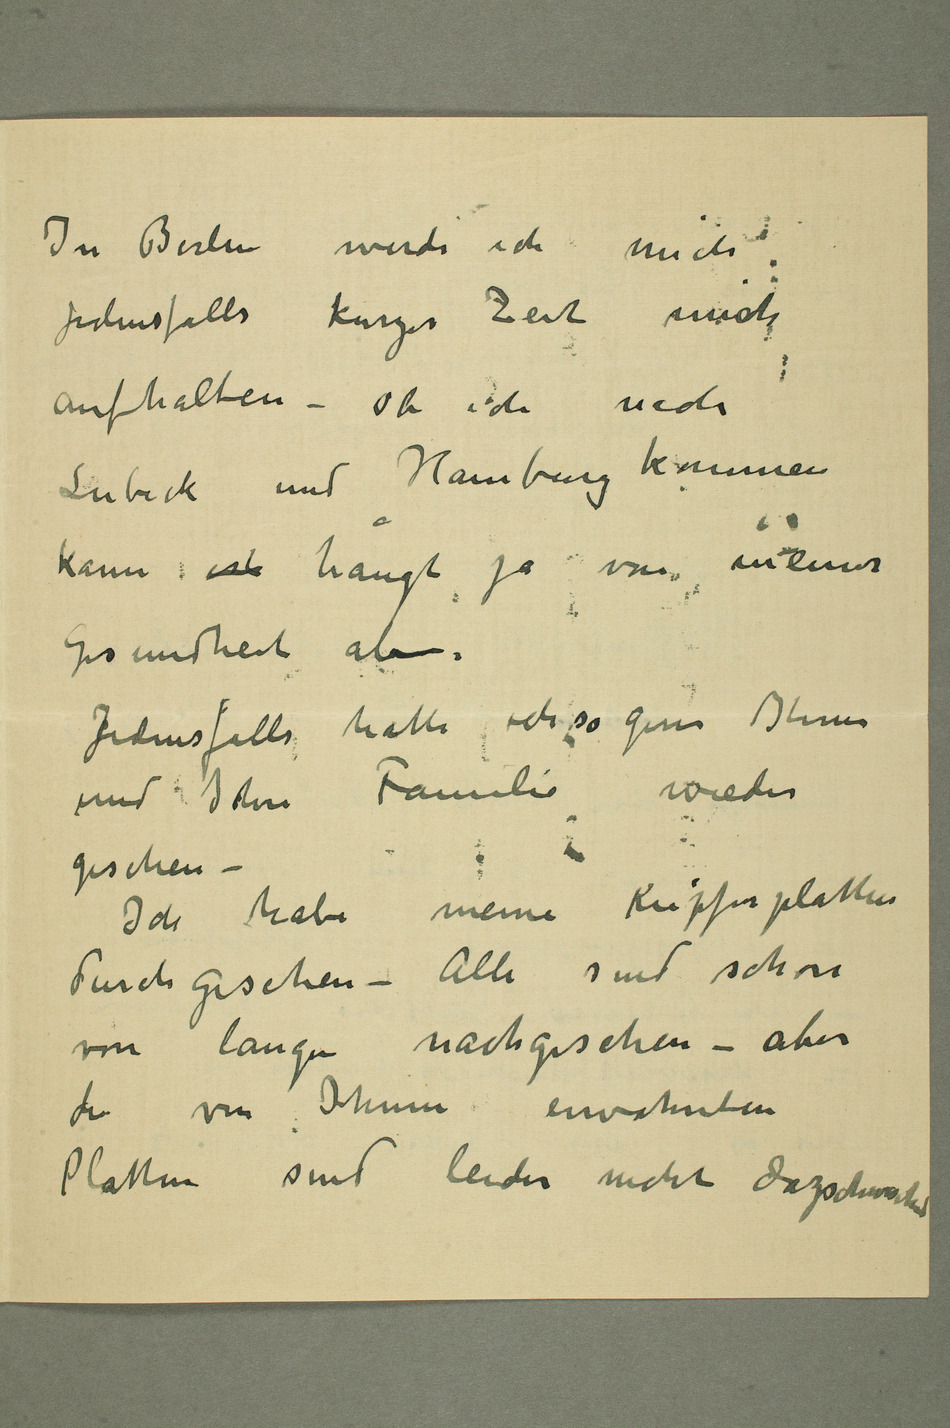 In Berlin werde ich mich
jedensfalls kurze Zeit mich
aufhalten – ob ich nach
Lubeck und Hamburg kommen
kann ich hångt ja von meiner
Gesundheit ab.
Jedensfalls hatte ich so gern Ihnen
und Ihre Familie wieder
gesehen –
Ich habe meine Kupferplatten
durchgesehen – Alle sind schon
von lange nachgesehen – aber
die von Ihnen erwahnten
Platten sind leider nicht dazschwischen